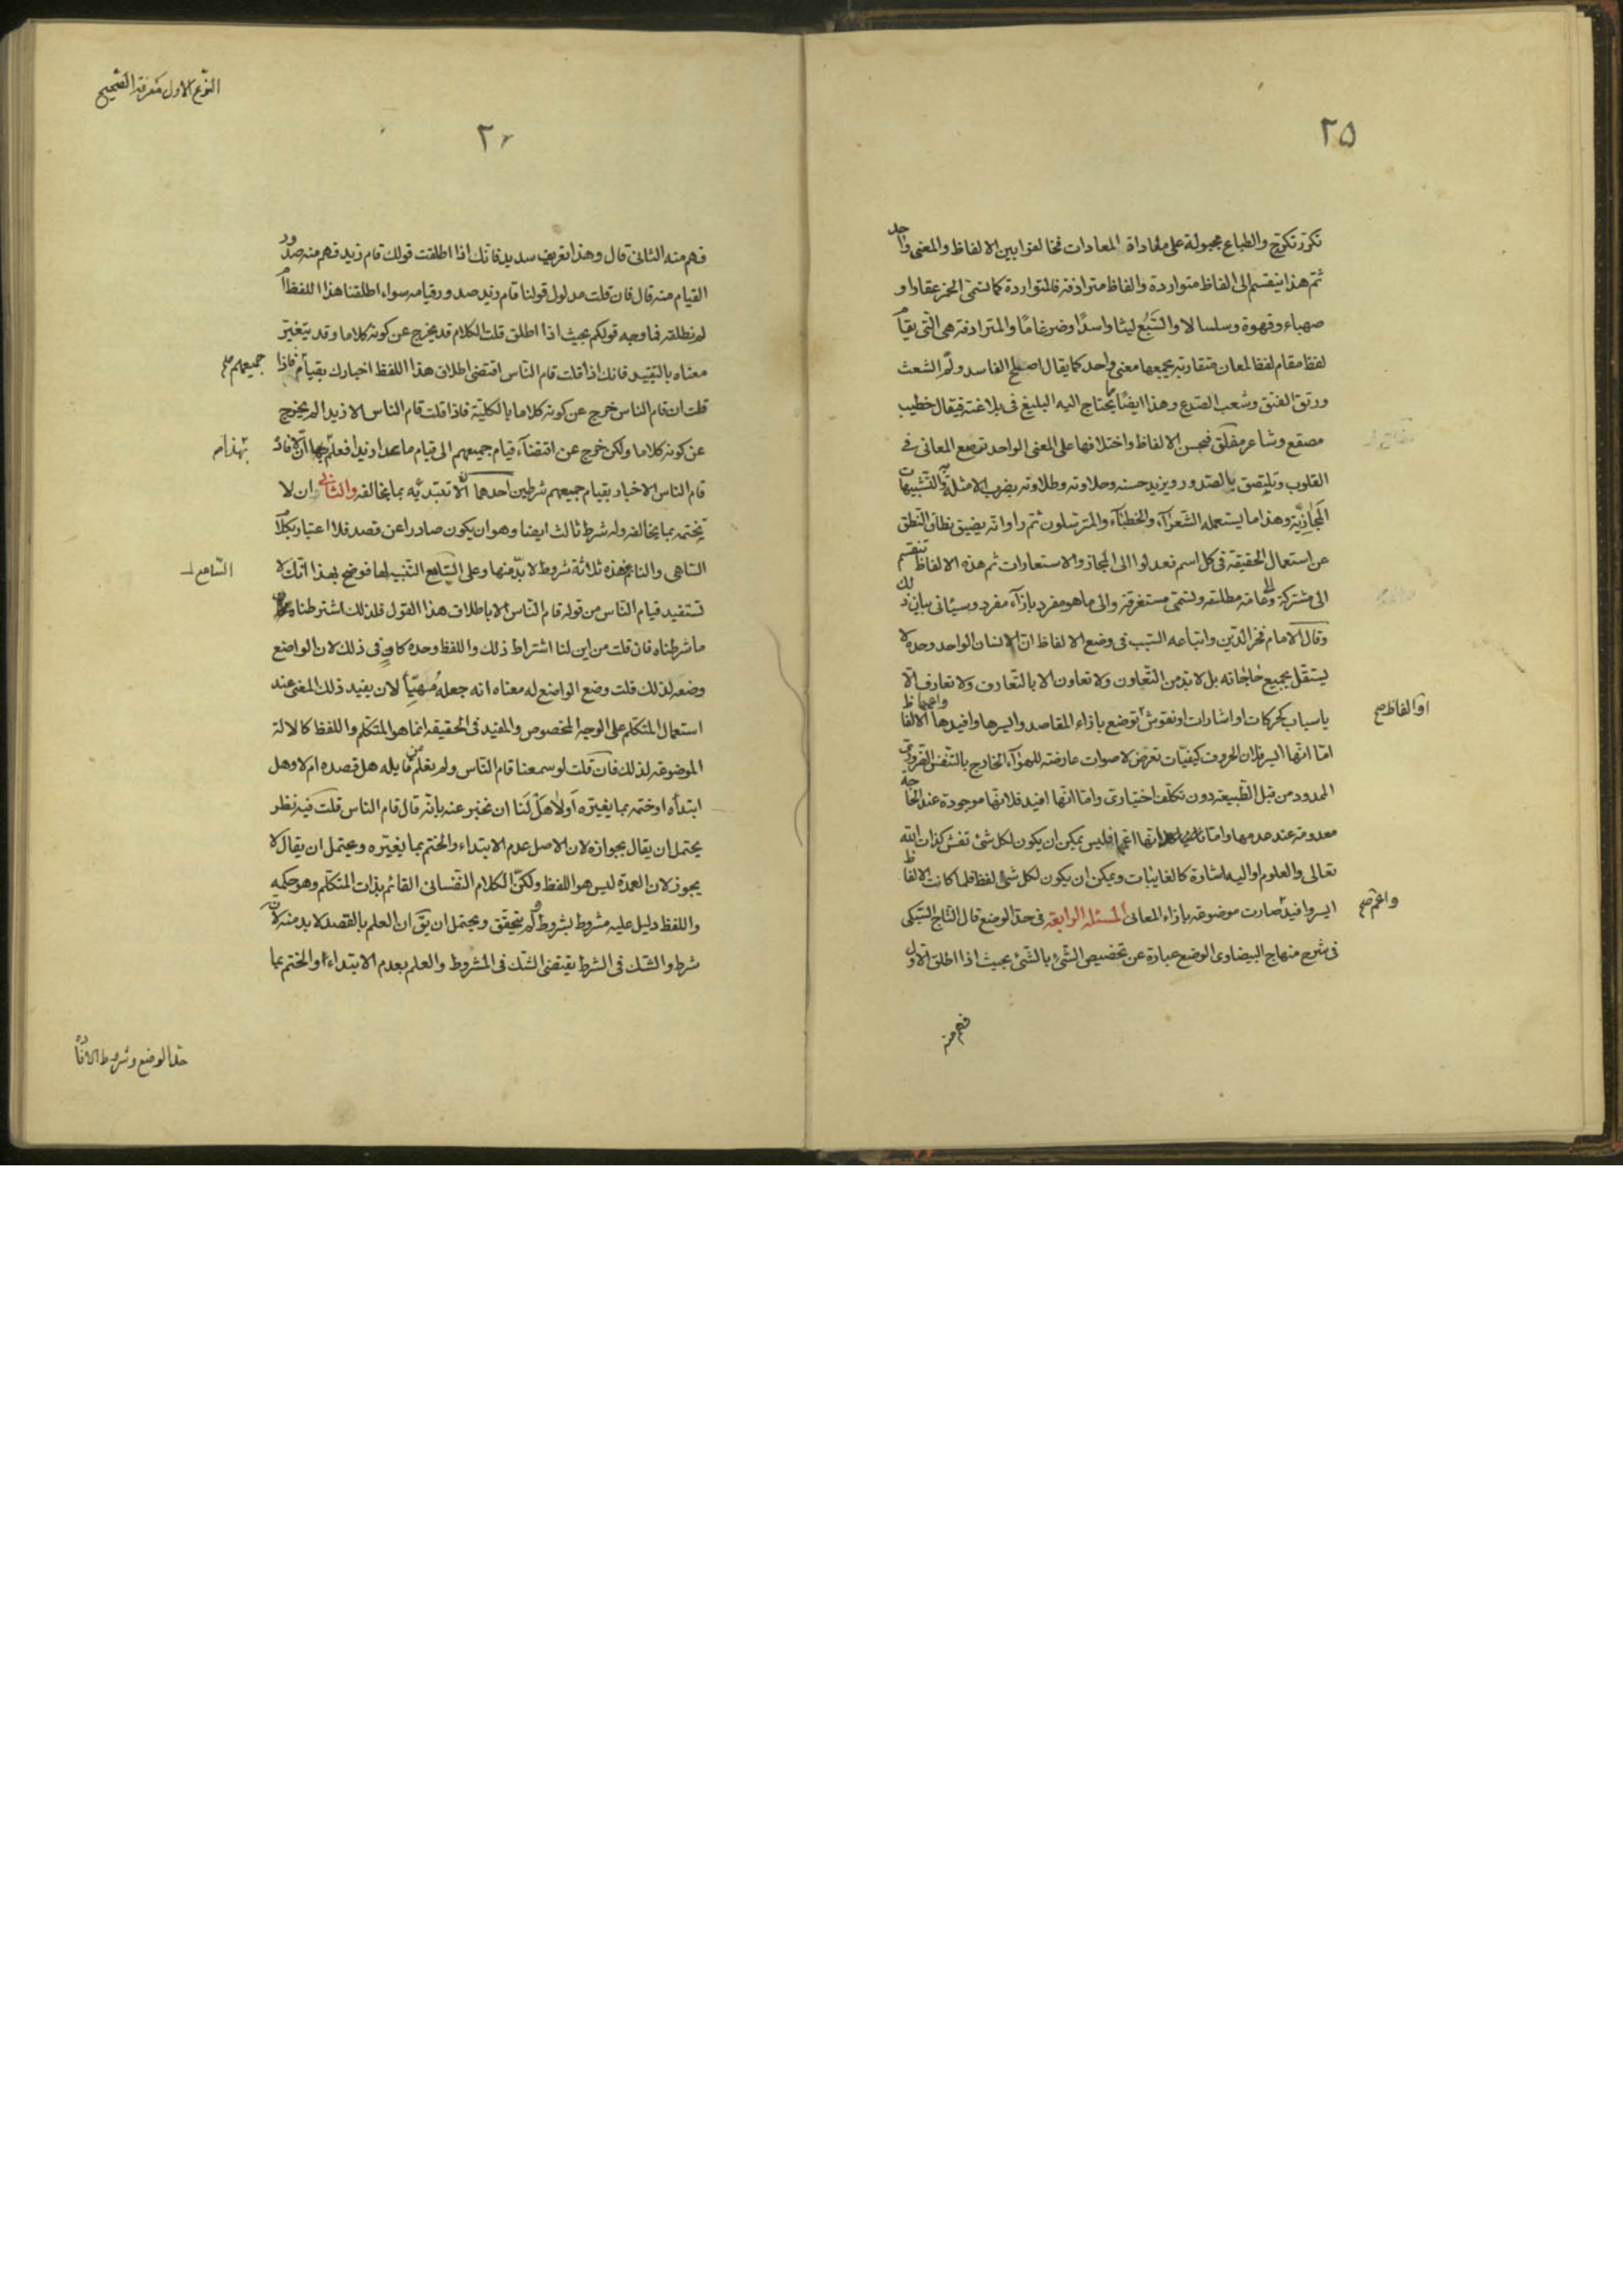 ٢٥
تكرر تكرج والطباع مجبولة على معاداة المعادات فخالفوا بين الالفاظ والمعنى واحد
ثم هذا ينقسم الى الفاظ متواردة والفاظ مترادفة فالمتواردة كما تسمى الخمر عقارا و
صهباء وقهوة وسلسالا والسبع ليثا واسدا وضرغاما والمترادفة هى التى يقام
لفظ مقام لفظ لمعان متقاربة يجمعها معنى واحد كما يقال اصلح الفاسد ولم الشعث
ورتق الفتق وشعب الصدع وهذا ايضا مما يحتاج اليه البليغ فى بلاغته فيقال خطيب
مصقع وشاعر مفلق فبحسن الالفاظ واختلافها على المعنى الواحد ترصع المعانى فى
القلوب وتلتصق بالصدور ويزيد حسنه وحلاوته وطلاوته بضرب الامثلة به والتشبيهات
المجازية وهذا ما يستعمله الشعراء والخطباء والمترسلون ثم راوا انه يضيق نطاق النطق
عن استعمال الحقيقة فى كل اسم فعدلوا الى المجاز والاستعارات ثم هذه الالفاظ تنقسم
الى مشتركة والى عامة مطلقة وتسمى مستغرقة والى ما هو مفرد بازاء مفرد وسيئاتى بيان ذلك
وقال الامام فخر الدين واتباعه السبب فى وضع الالفاظ ان الانسان الواحد وحده لا
يستقل بجميع حاجاته بل لا بد من التعاون ولا تعاون الا بالتعارف ولا تعارف الا
باسباب كحركات او اشارات او نقوش توضع بازاء المقاصد وايسرها وافيدها واعمها الالفاظ
او الفاظ صح
اما انها ايسر فلان الحروف كيفيات تعرض لاصوات عارضة للهواء الخارج بالتنفس الضرورى
الممدود من قبل الطبيعة دون تكلف اختيارى واما انها افيد فلانها موجودة عند الحاجة
معدومة عند عدمها واما انها اعمها فليس يمكن ان يكون لكل شئ نقش كذات الله
تعالى والعلوم او اليه اشارة كالغايبات ويمكن ان يكون لكل شئ لفظ فلما كانت الالفاظ
ايسر وافيد صارت موضوعة بازاء المعانى المسئلة الرابعة فى حد الوضع قال التاج السبكى
واعم صح
فى شرح منهاج البيضاوى الوضع عبارة عن تخصيص الشئ بالشئ بحيث اذا اطلق الاول
فهم منه
النوع الاول معرفة الصحيح
٢
فهم منه الثانى قال وهذا تعريف سديد فانك اذا اطلقت قولك قام زيد فهم منه صدور
القيام منه قال فان قلت مدلول قولنا قام زيد صدور قيامه سواء اطلقنا هذا اللفظ ام
لم نطلقه فما وجه قولكم بحيث اذا اطلق قلت الكلام قد يخرج عن كونه كلاما وقد يتغير
معناه بالتقييد فانك اذا قلت قام الناس اقتضى اطلاق هذا اللفظ اخبارك بقيام فاذا
جميعهم صح
قلت ان قام الناس خرج عن كونه كلاما بالكلية فاذا قلت قام الناس الا زيدا لم يخرج
عن كونه كلاما ولكن خرج عن اقتضاء قيام جميعهم الى قيام ما عدا زيدا فعلم بها ان لافادة
بهذا صح
قام الناس الاخبار بقيام جميعهم شرطين احدهما ان لا تبتدئه بما يخالفه والثانى ان لا
يختمه بما يخالفه وله شرط ثالث ايضا وهو ان يكون صادرا عن قصد فلا اعتبار بكلام
الساهى والنائم فهذه ثلاثة شروط لا بد منها وعلى السامع التنبيه لها فوضح بهذا انك لا
السامع
تستفيد قيام الناس من قوله قام الناس الا باطلاق هذا القول فلذلك اشترطنا
ما شرطناه فان قلت من اين لنا اشتراط ذلك واللفظ وحده كاف فى ذلك لان الواضع
وضعه لذلك قلت وضع الواضع له معناه انه جعله مهيّأ لان يفيد ذلك المعنى عند
استعمال المتكلم على الوجه المخصوص والمفيد فى الحقيقة انما هو المتكلم واللفظ كالالة
الموضوعة لذلك فان قلت لو سمعنا قام الناس ولم نعلم من قايله هل قصده ام لا وهل
ابتداه او ختمه بما يغيره او لا هل لنا ان نخبر عنه بانه قال قام الناس قلت فيه نظر
يحتمل ان يقال بجوازه لان الاصل عدم الابتداء والختم بما يغيره ويحتمل ان يقال لا
يجوز لان العمدة ليس هو اللفظ ولكن الكلام النفسانى القائم بذات المتكلم وهو حكمه
واللفظ دليل عليه مشروط بشروط ولم تتحقق ويحتمل ان يق ان العلم بالقصد لا بد منه لانه
شرط والشك فى الشرط يقتضى الشك فى المشروط والعلم بعدم الابتداء او الختم بما
حد الوضع وشروط الافا